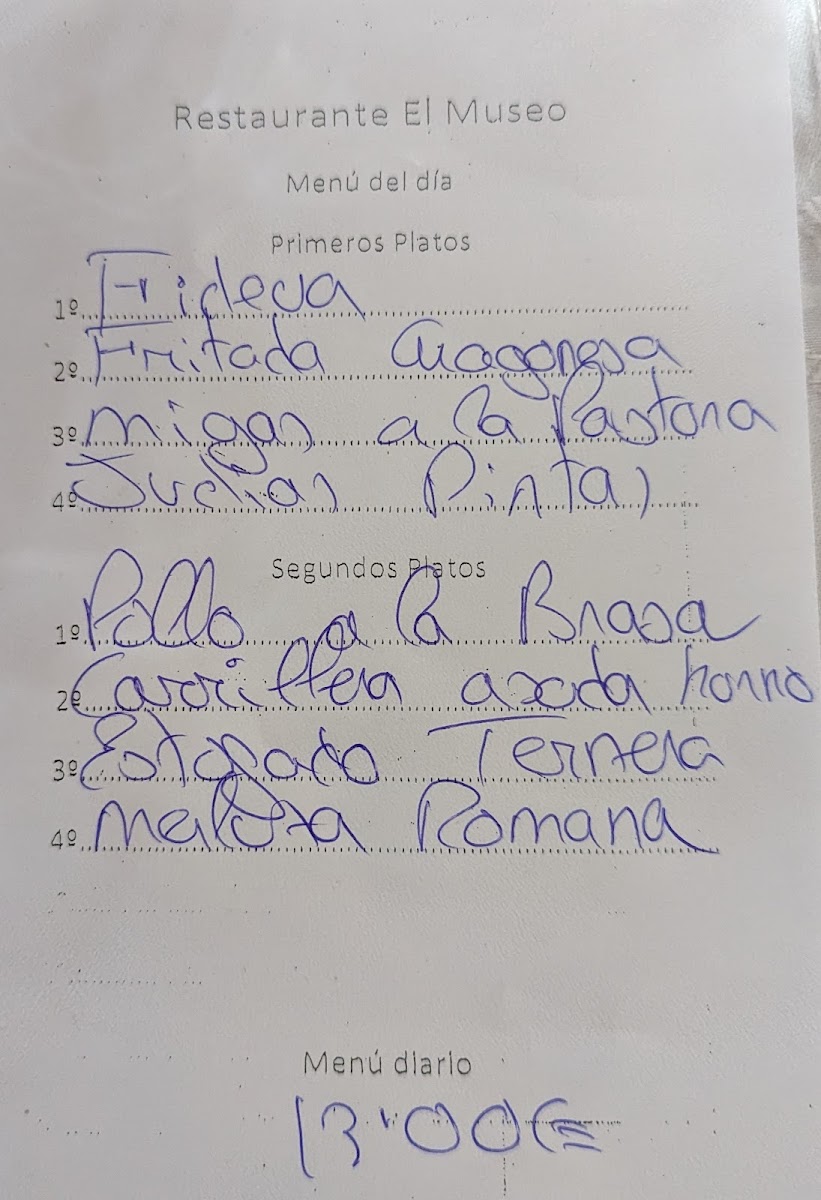 Restaurante El Museo
Menú del día
Primeros Platos
1º Fideua
2º Fritada Aragonesa
3º Migas a la Pastora
4º Judias Pintas
Segundos Platos
1º Pollo a la Brasa
2º Carrillera asada horno
3º Estofado Ternera
4º Merluza Romana
Menú diario
13'00€